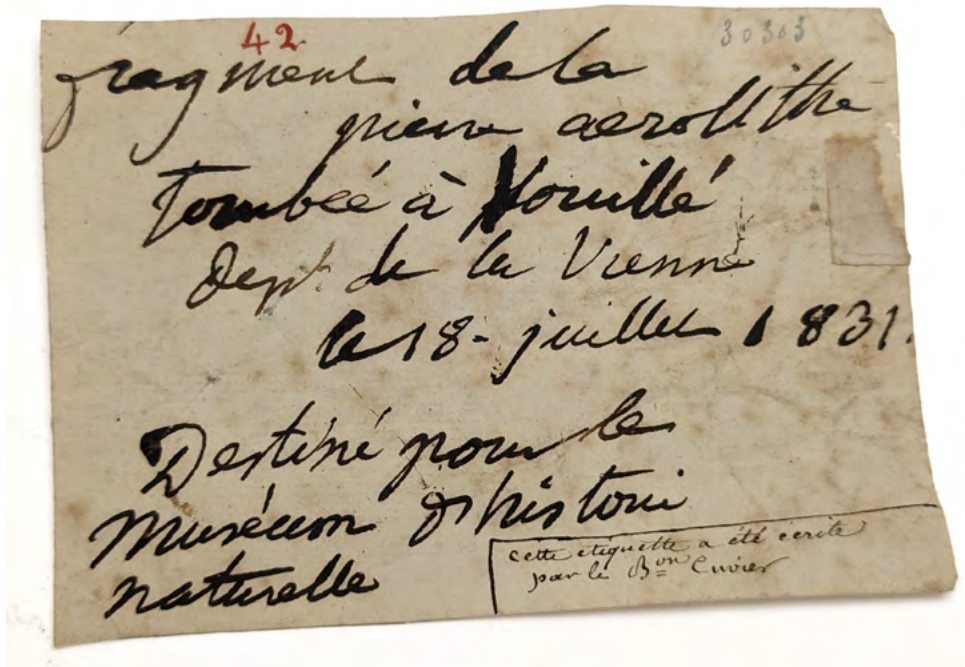 42
30303
fragment de la
pierre aerolithe
Tombée à Vouillé
Dept. de la Vienne
le 18 - juillet 1831.
Destiné pour le
Muséeum d'histoire
naturelle
cette etiquette a été écrite
par le Bon Cuvier